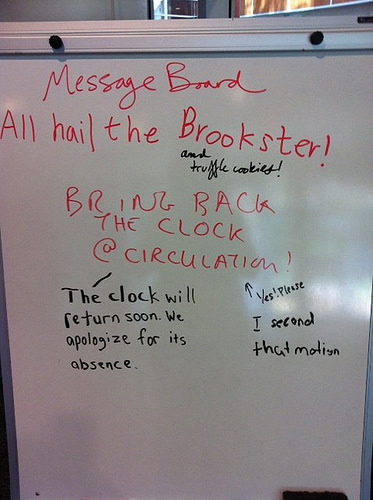 Message Board
All hail the Brookster!
and
truffle cookies!
BRING BACK
THE CLOCK
@ CIRCULATION!
The clock will
return soon. We
apologize for its
absence.
Yes! Please
I second
that motion